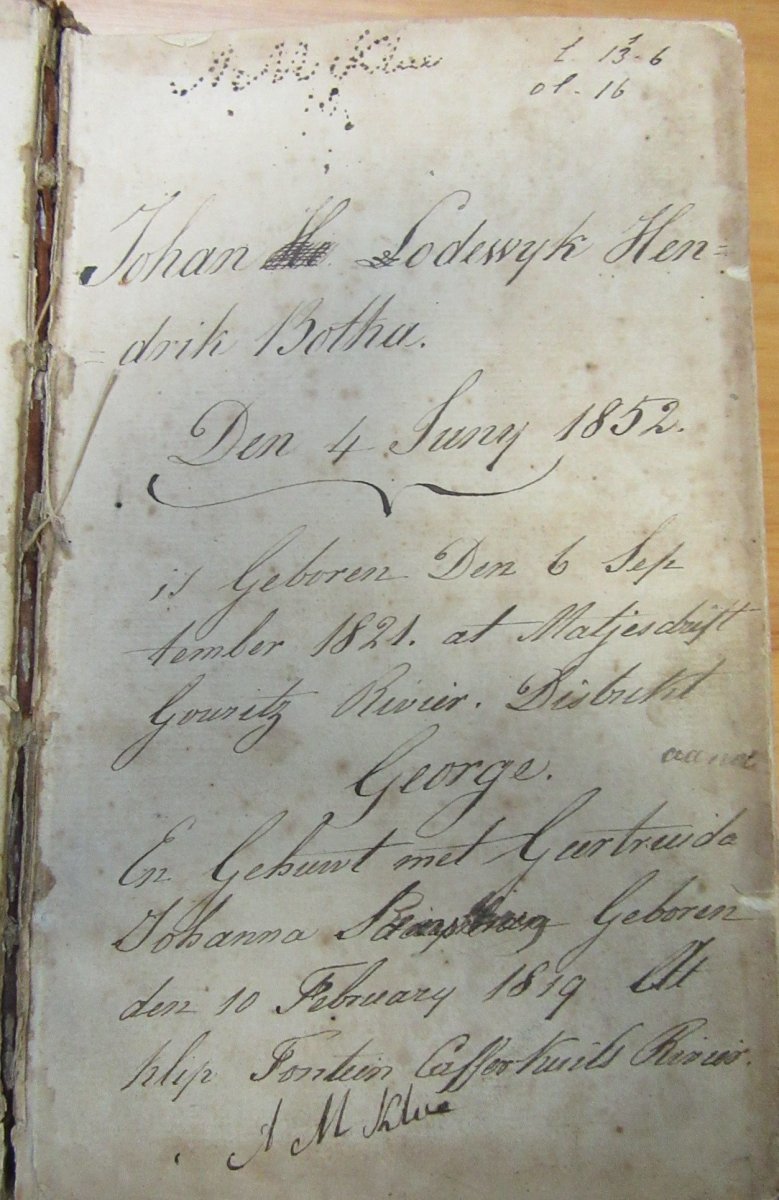 A M Klue
£ 13-6
ol - 16
Johan Lodewyk Hen=
=drik Botha.
Den 4 Juny 1852.
is Geboren Den 6 Sep
tember 1821. at Matjesdrift
Gouritz Rivier. Distrikt
George.
En Gehuwt met Geertruida
Johanna Geboren
den 10 February 1819 At
klip Fontein Cafferkuils Rivier.
A M Klue